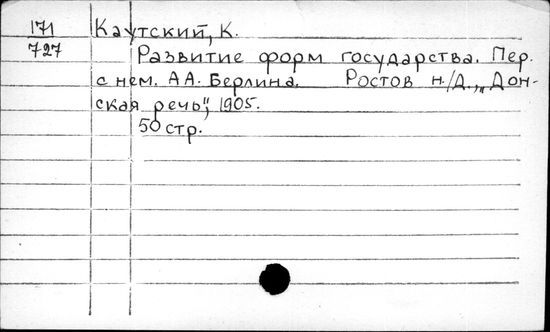 171 Каутский, К.
727
Развитие форм государства. Пер.
с нем. А А. Берлина. Ростов н./Д., „Дон-
ская речь", 1905.
50 стр.